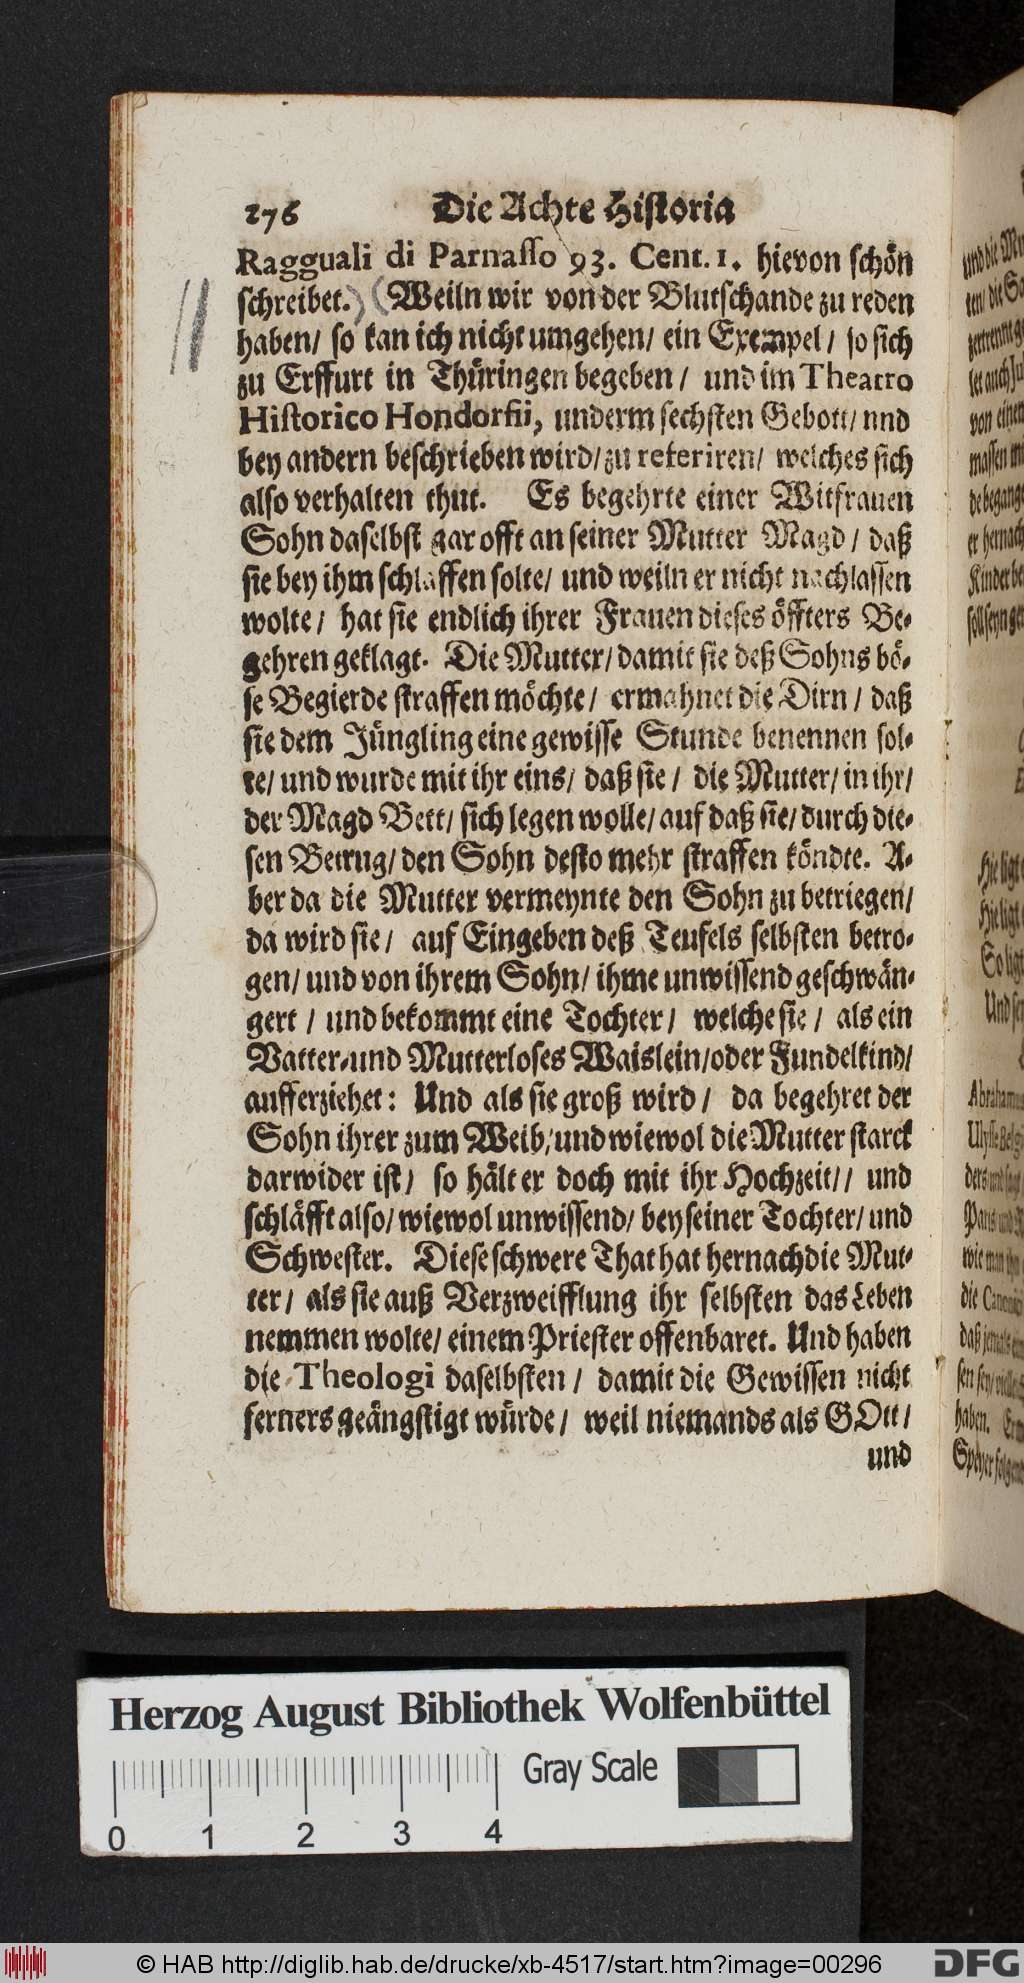 276 Die Achte Historia
Ragguali di Parnasso 93. Cent. 1. hievon schön
schreibet.) (Weiln wir von der Blutschande zu reden
haben/ so kan ich nicht umgehen/ ein Exempel/ so sich
zu Erffurt in Thüringen begeben/ und im Theatro
Historico Hondorfii, underm sechsten Gebott/ und
bey andern beschrieben wird/ zu referiren/ welches sich
also verhalten thut. Es begehrte einer Witfrauen
Sohn daselbst gar offt an seiner Mutter Magd/ daß
sie bey ihm schlaffen solte/ und weiln er nicht nachlassen
wolte/ hat sie endlich ihrer Frauen dieses öffters Be-
gehren geklagt. Die Mutter/ damit sie deß Sohns bö-
se Begierde straffen möchte/ ermahnet die Dirn/ daß
sie dem Jüngling eine gewisse Stunde benennen sol-
te/ und wurde mit ihr eins/ daß sie/ die Mutter/ in ihr/
der Magd Bett/ sich legen wolle/ auf daß sie/ durch die-
sen Betrug/ den Sohn desto mehr straffen köndte. A-
ber da die Mutter vermeynte den Sohn zu betriegen/
da wird sie/ auf Eingeben deß Teufels selbsten betro-
gen/ und von ihrem Sohn/ ihme unwissend geschwän-
gert/ und bekommt eine Tochter/ welche sie/ als ein
Vatter-und Mutterloses Waislein/ oder Fundelkind/
aufferziehet: Und als sie groß wird/ da begehret der
Sohn ihrer zum Weib/ und wiewol die Mutter starck
darwider ist/ so hält er doch mit ihr Hochzeit// und
schläfft also/ wiewol unwissend/ bey seiner Tochter/ und
Schwester. Diese schwere That hat hernach die Mut-
ter/ als sie auß Verzweifflung ihr selbsten das Leben
nemmen wolte/ einem Priester offenbaret. Und haben
die Theologi daselbsten/ damit die Gewissen nicht
ferners geängstigt würde/ weil niemands als GOtt/
und
Herzog August Bibliothek Wolfenbüttel
Gray Scale
0 1 2 3 4
© HAB http://diglib.hab.de/drucke/xb-4517/start.htm?image=00296
DFG